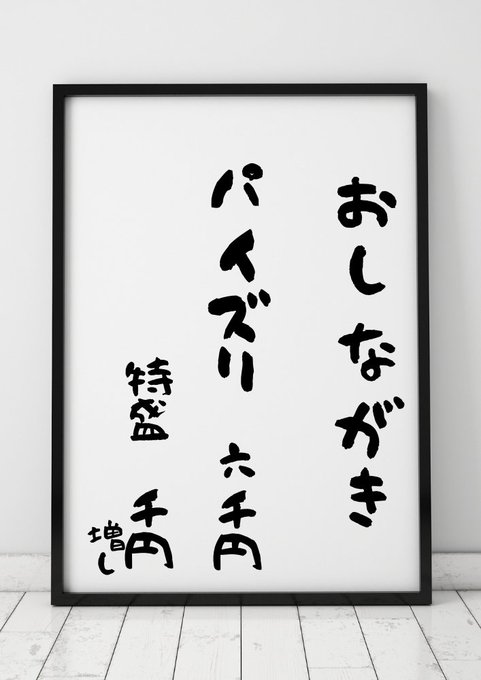 おしながき
パイズリ 六千円
特盛 千円増し